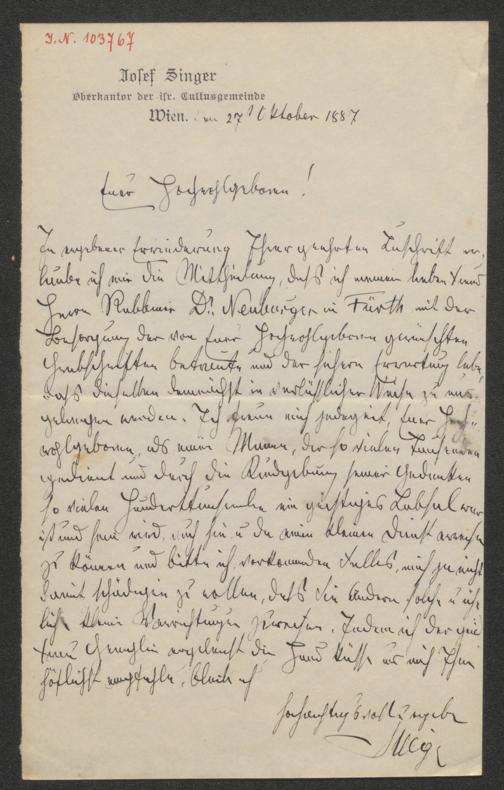 I.N. 103767
Josef Singer
Oberkantor der isr. Cultusgemeinde
Wien, am 27 Oktober 1887
Euer Hochwohlgeboren!
In ergebener Erwiderung Ihrer geehrten Zuschrift er-
laube ich mir die Mittheilung, daß ich meinen lieben Freund
Herrn Rabbiner Dr. Neubürger in Fürth mit der
Besorgung der von Euer Hochwohlgeboren gewünschten
Grabschriften betraute und der sichern Erwartung lebe,
daß dieselben demnächst in verläßlicher Weise zu uns
gelangen werden. Ich freue mich jederzeit, Euer Hoch-
wohlgeboren, als einem Manne, der so vielen Tausenden
gedient und durch die Kundgebung seiner Gedanken
so vielen Hunderttausenden ein geistiges Labsal war
ist und sein wird, auch hie u da einen kleinen Dienst erweisen
zu können und bitte ich, vorkommenden Falles, mich ja nicht
damit schädigen zu wollen, daß Sie Andern solche
kleine Verrichtungen zuweisen. Indem ich der
Frau Gemahlin ergebenst die Hand küsse und mich Ihnen
höflichst empfehle, bleibe ich
hochachtungsvoll ergebener
Singer